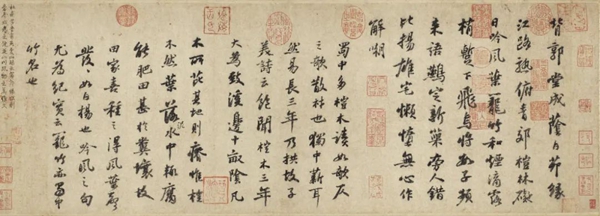 背郭堂成蔭白茅緣
江路熟俯青郊榿林礙
日吟風葉籠竹和煙滴露
梢暫下飛烏將數子頻
來語鷰定新巢旁人錯
比揚雄宅懶惰無心作
解嘲
蜀中多榿木讀如欹仄
之欹散材也獨中薪耳
然易長三年乃拱故子
美詩云飽聞榿木三年
大為致溪邊十畝陰凡
木所芘其地則瘠惟榿
不然葉落水中輒腐
能肥田甚於糞壤故
田家喜種之得風葉聲
發發如白楊也吟風之句
尤為紀實云籠竹亦蜀中
竹名也